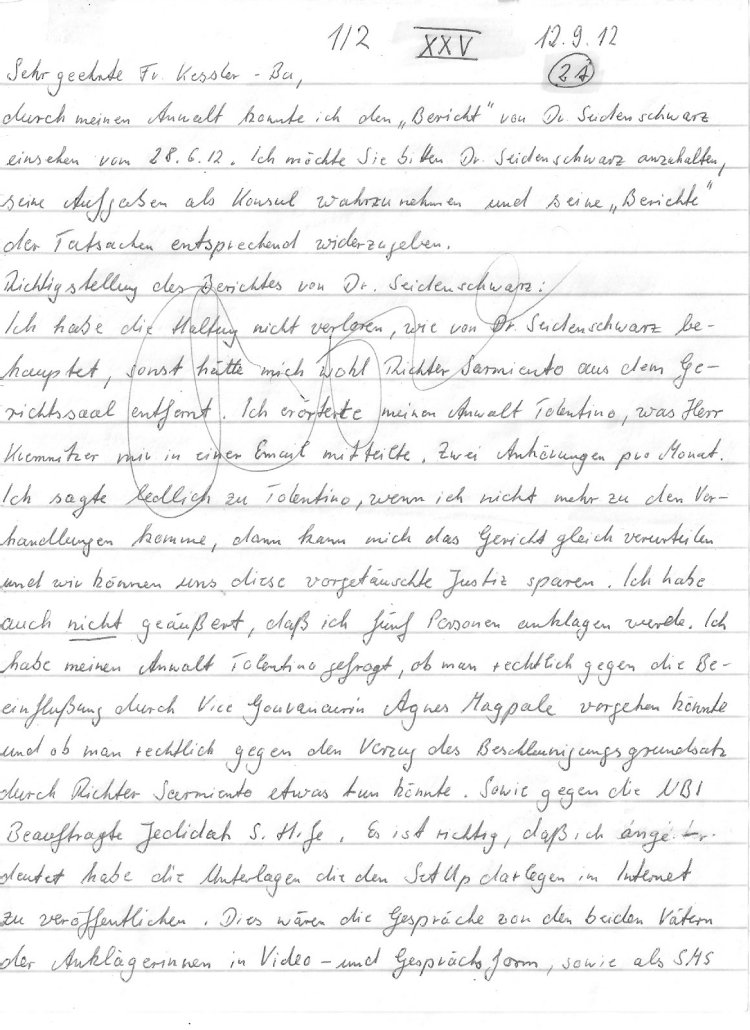 1/2 XXV 12.9.12
Sehr geehrte Fr. Kessler-Bu,
21
durch meinen Anwalt konnte ich den „Bericht" von Dr. Seidenschwarz
einsehen vom 28.6.12. Ich möchte Sie bitten Dr. Seidenschwarz anzuhalten,
seine Aufgaben als Konsul wahrzunehmen und seine „Berichte"
der Tatsachen entsprechend widerzugeben.
Richtigstellung des Berichtes von Dr. Seidenschwarz:
Ich habe die Haltung nicht verloren, wie von Dr. Seidenschwarz be-
hauptet, sonst hätte mich wohl Richter Sarmiento aus dem Ge-
richtssaal entfernt. Ich erörterte meinen Anwalt Tolentino, was Herr
Kiemnitzer mir in einer Email mitteilte. Zwei Anhörungen pro Monat.
Ich sagte ledlich zu Tolentino, wenn ich nicht mehr zu den Ver-
handlungen komme, dann kann mich das Gericht gleich verurteilen
und wir können uns diese vorgetäuschte Justiz sparen. Ich habe
auch nicht geäußert, daß ich fünf Personen anklagen werde. Ich
habe meinen Anwalt Tolentino gefragt, ob man rechtlich gegen die Be-
einflußung durch Vice Gouvanaurin Agnes Magpale vorgehen könnte
und ob man rechtlich gegen den Verzug des Beschleunigungsgrundsatz
durch Richter Sarmiento etwas tun könnte. Sowie gegen die NBI
Beauftragte Jedidah S. Hife. Es ist richtig, daß ich ange
deutet habe die Unterlagen die den SetUp darlegen im Internet
zu veröffentlichen. Dies wären die Gespräche von den beiden Vätern
der Anklägerinnen in Video- und Gesprächsform, sowie als SMS